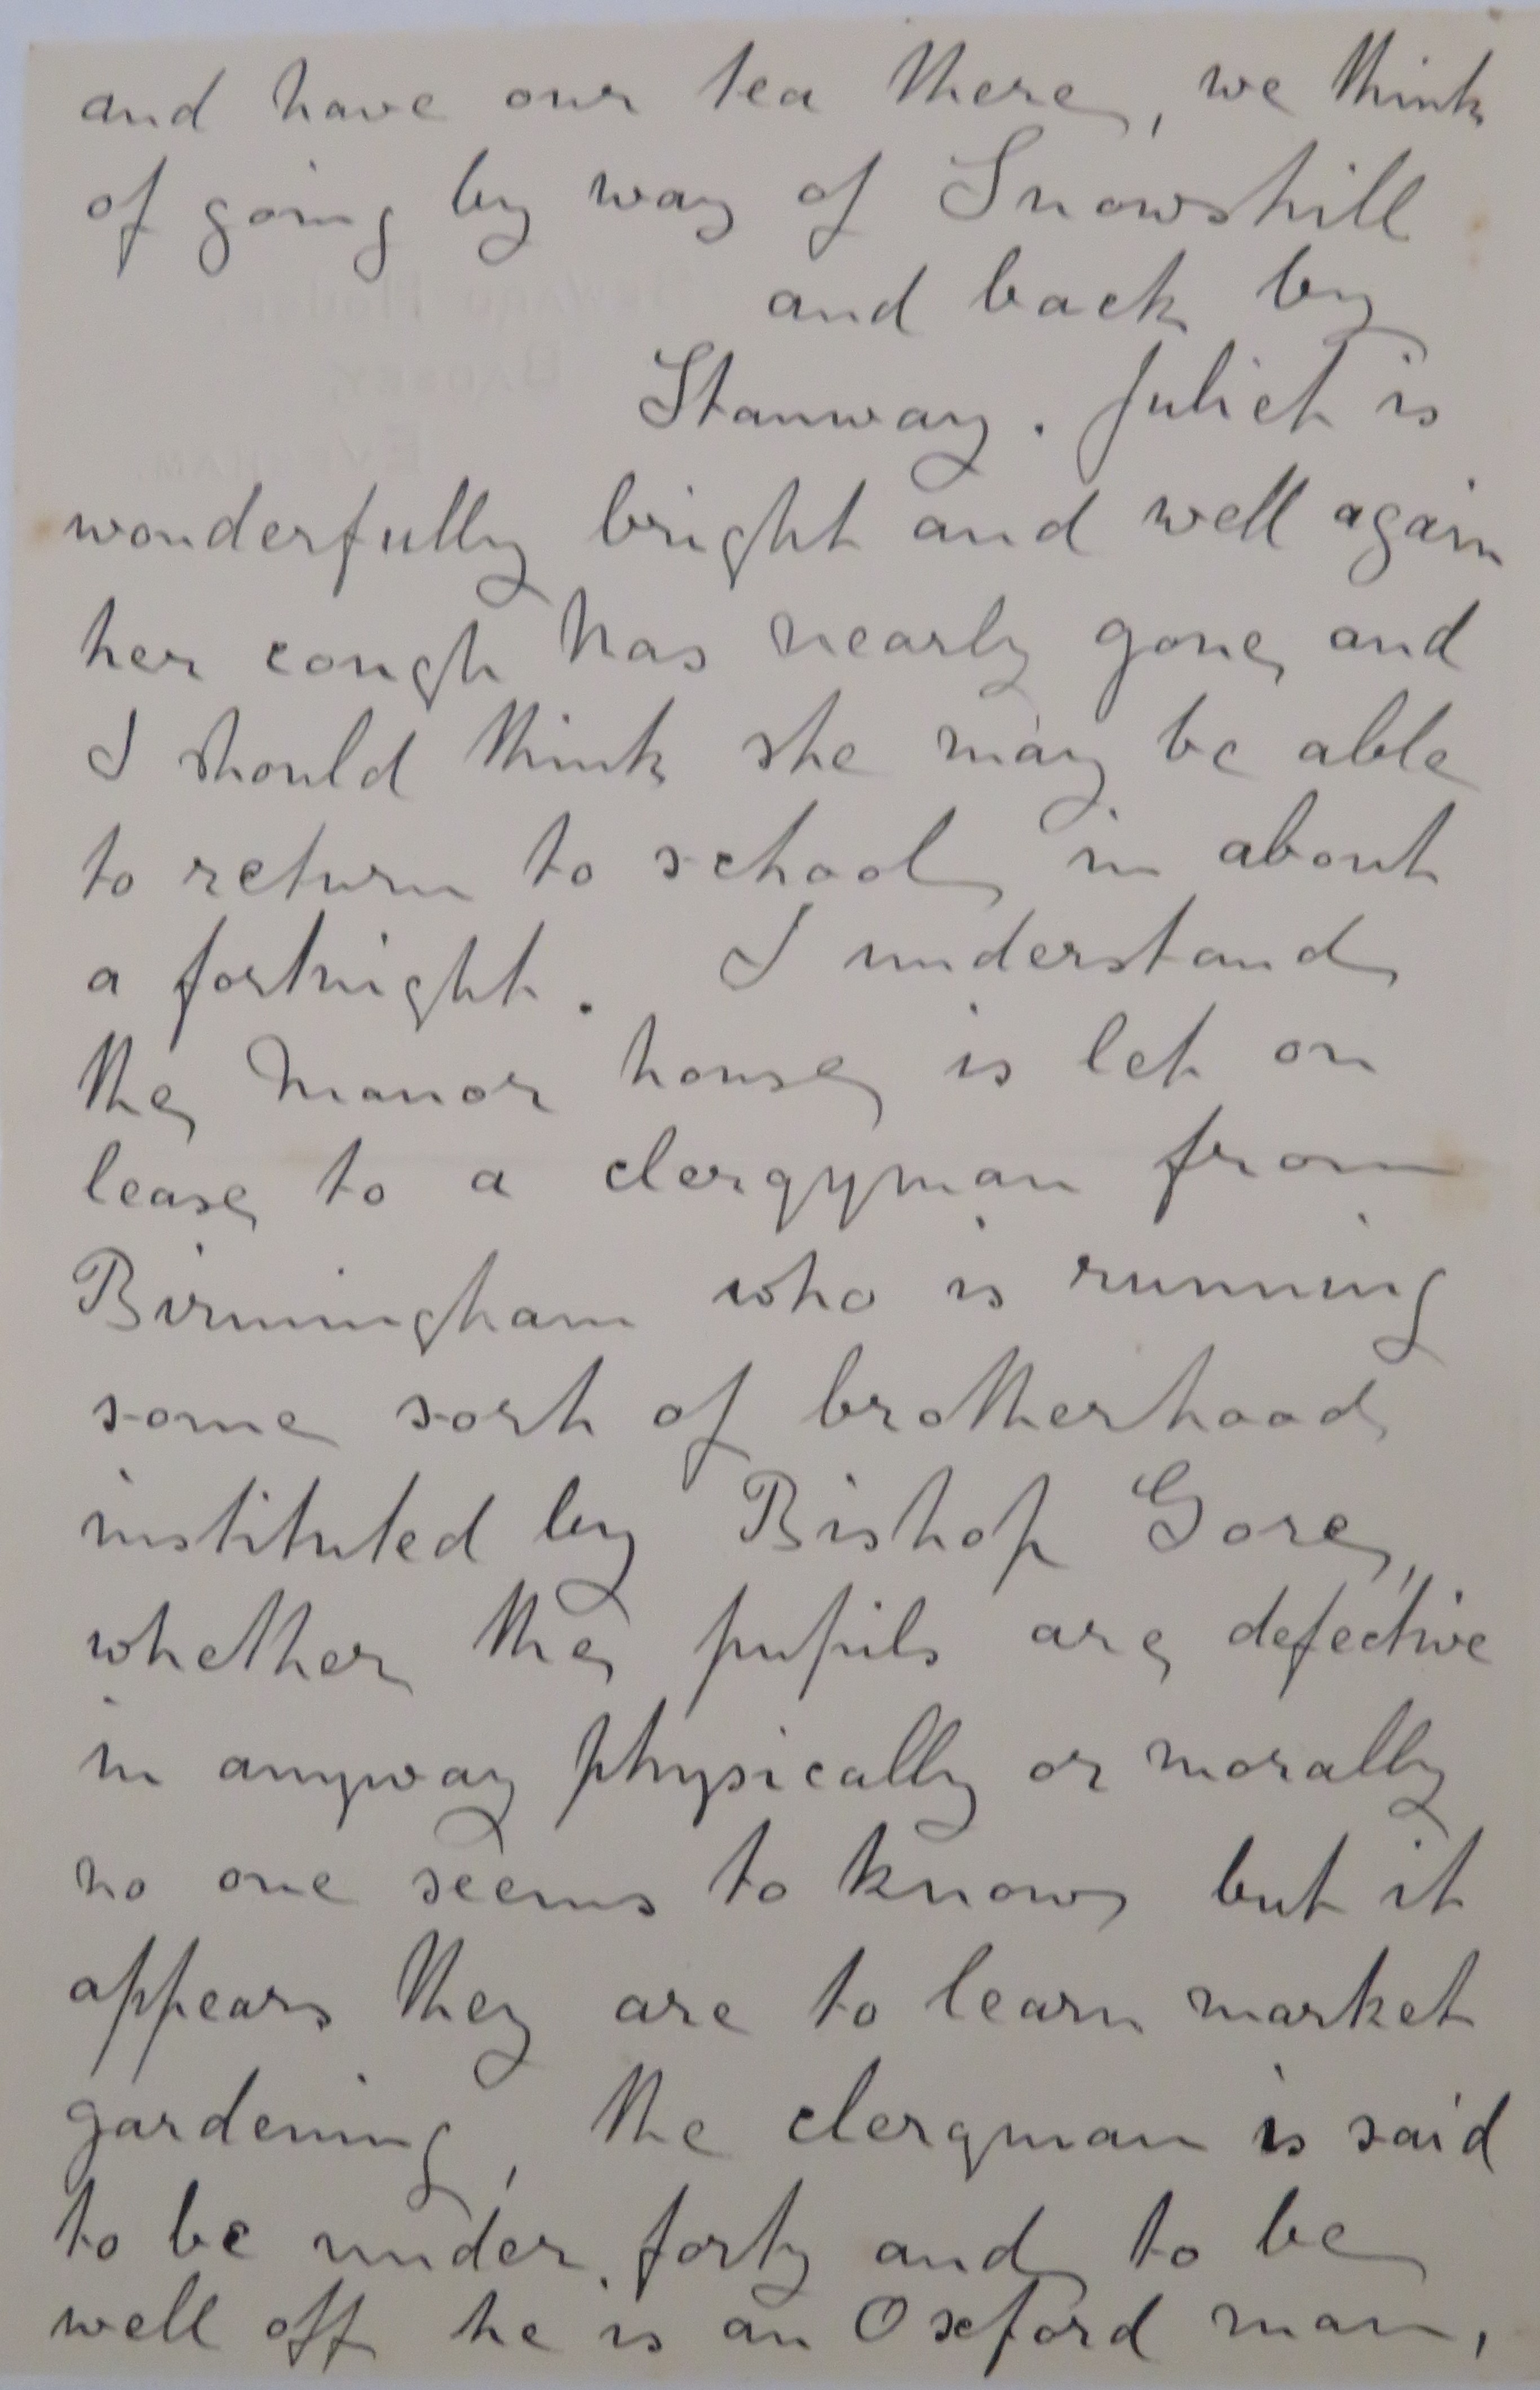 and have our tea there, we think
of going by way of Snowshill
and back by
Stanway. Juliet is
wonderfully bright and well again
her cough has nearly gone and
I should think she may be able
to return to school in about
a fortnight. I understand
the Manor house is let on
lease to a clergyman from
Birmingham who is running
some sort of brotherhood
instituted by Bishop Gore,
whether the pupils are defective
in anyway physically or morally
no one seems to know but it
appears they are to learn market
gardening, the clergman is said
to be under forty and to be
well off he is an Oxford man,